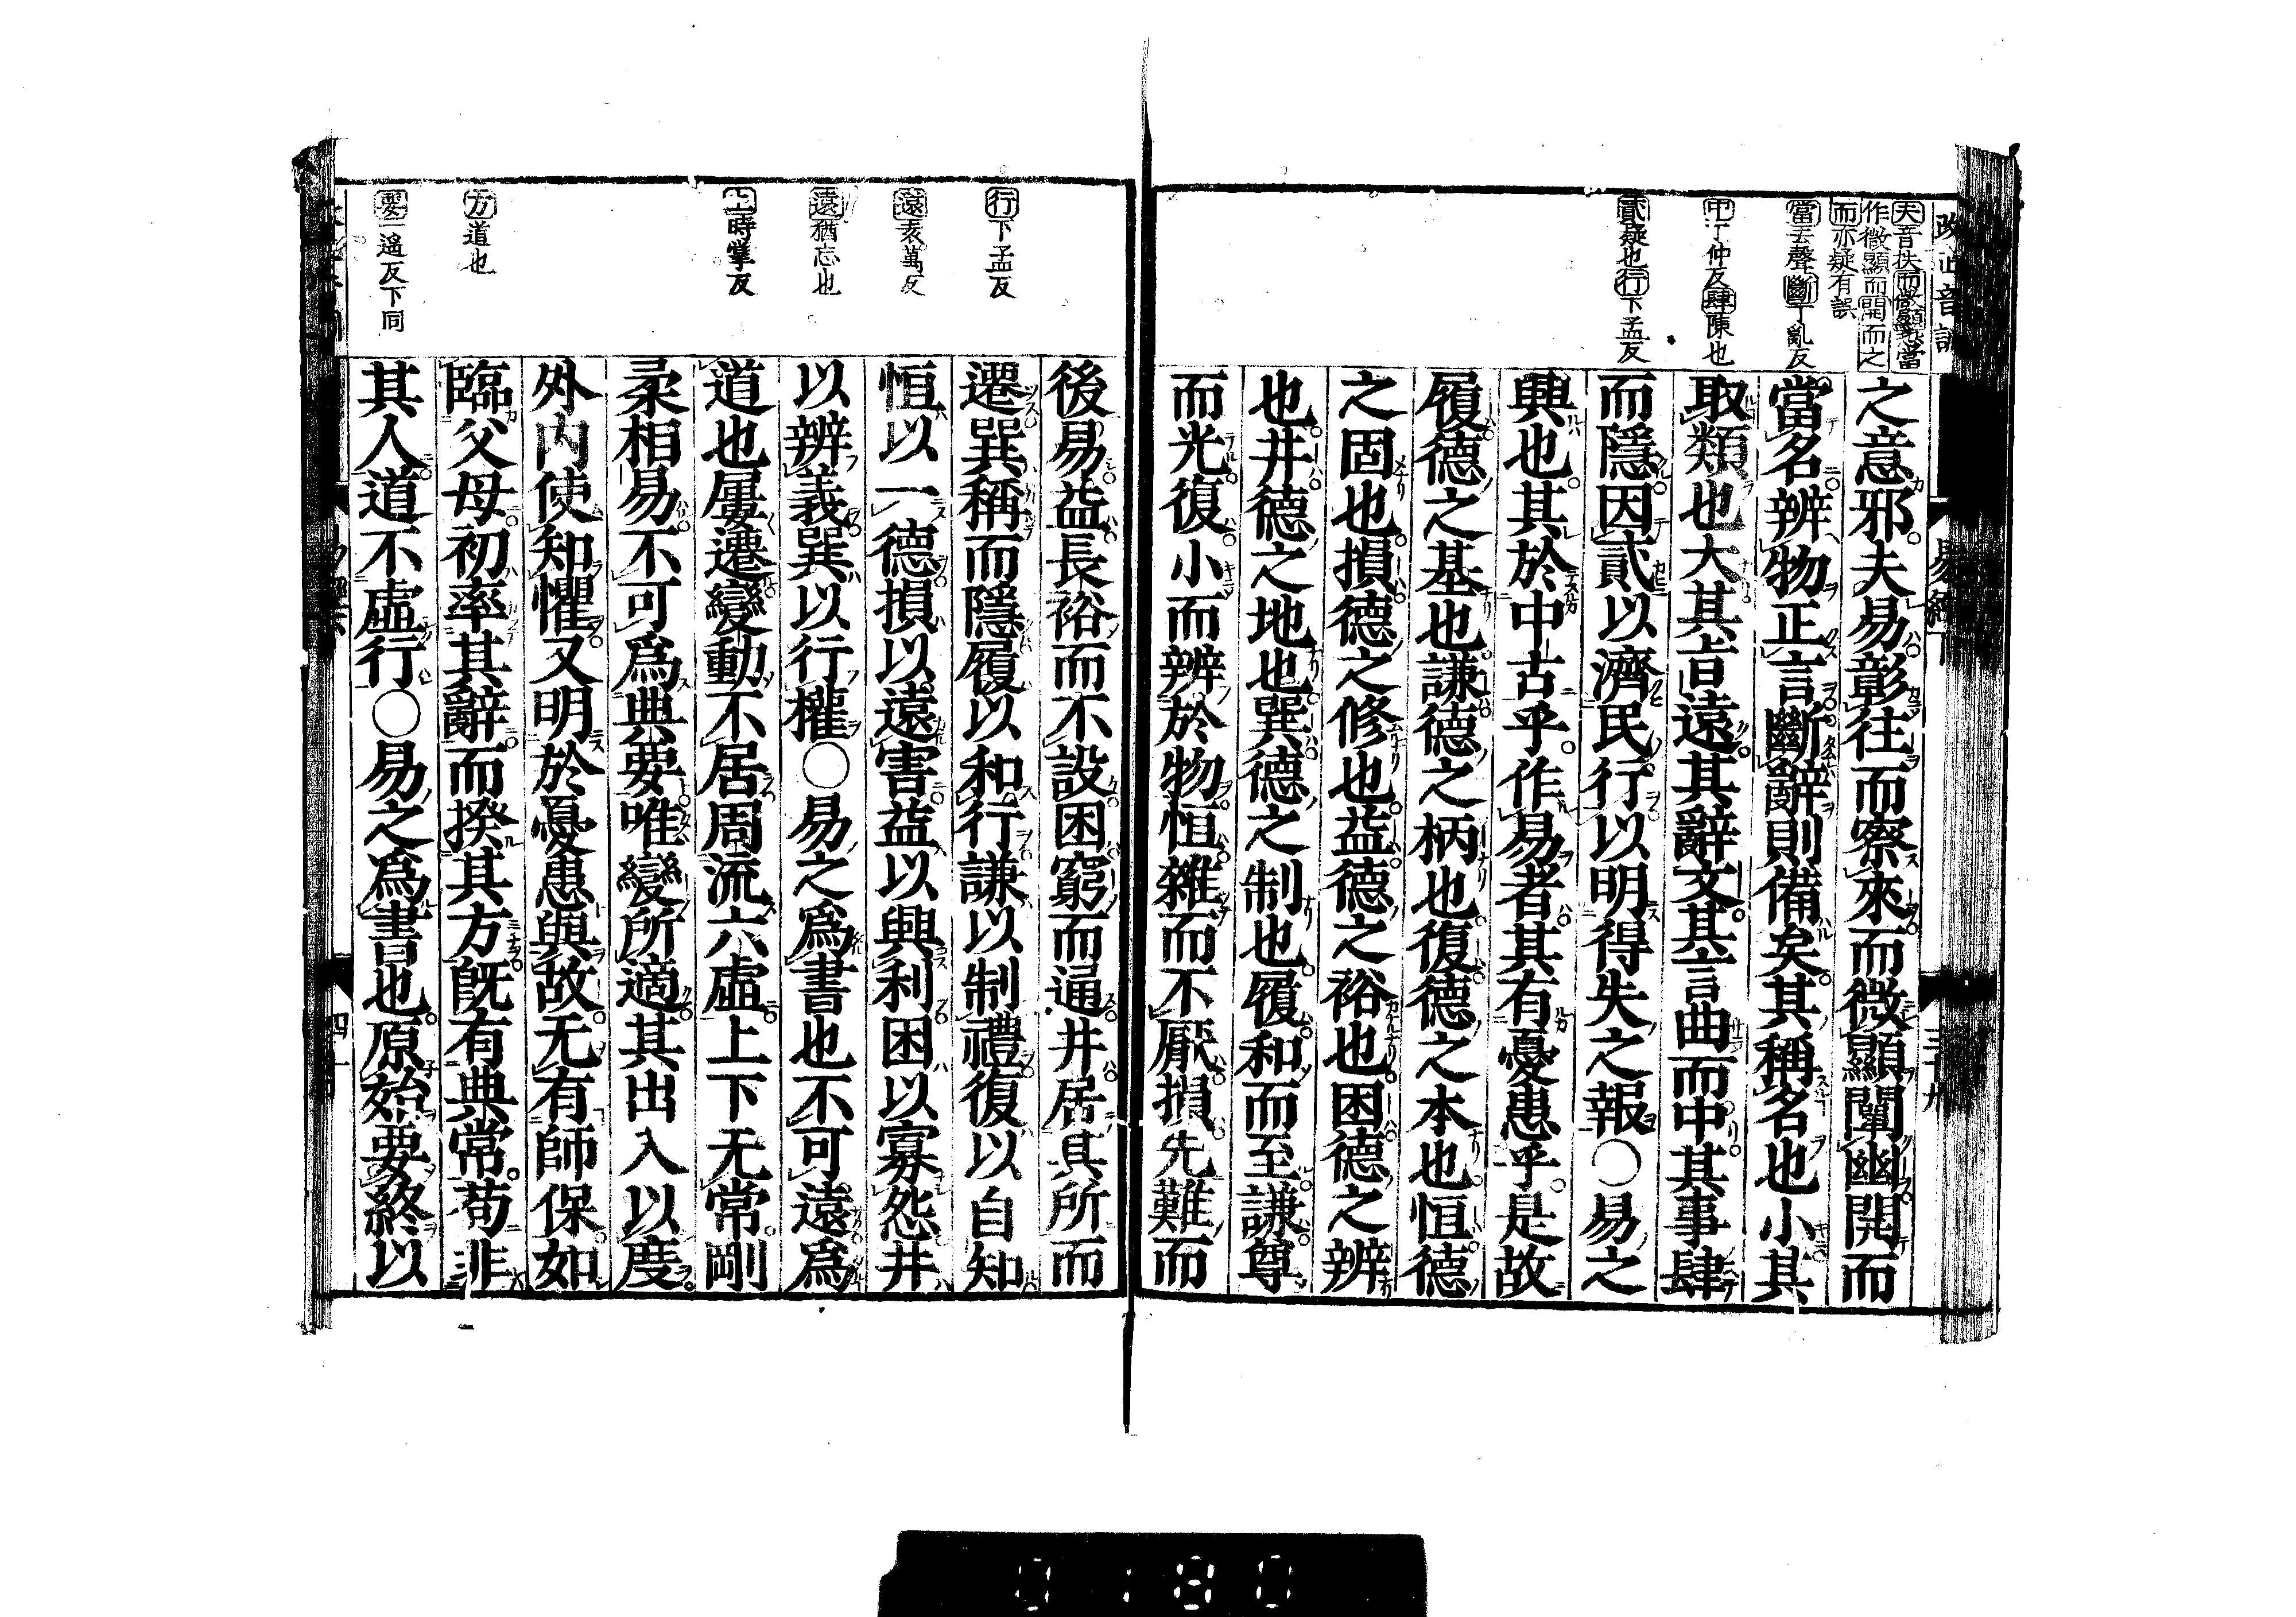 改正音訓
易經下
三十九
夫音扶而微顯當
作微顯而開而之
而亦疑有誤
當去聲斷丁亂反
中丁仲反肆陳也
貳疑也行下孟反
之意邪夫易彰往而察來而微顯闡幽開而
當名辨物正言斷辭則備矣其稱名也小其
取類也大其旨遠其辭文其言曲而中其事肆
而隱因貳以濟民行以明得失之報○易之
興也其於中古乎作易者其有憂患乎是故
履德之基也謙德之柄也復德之本也恒德
之固也損德之修也益德之裕也困德之辨
也井德之地也巽德之制也履和而至謙尊
而光復小而辨於物恒雜而不厭損先難而
行下孟反
遠袁萬反
遠猶忘也
上時掌反
方道也
要一遙反下同
後易益長裕而不設困窮而通井居其所而
遷巽稱而隱履以和行謙以制禮復以自知
恒以一德損以遠害益以興利困以寡怨井
以辨義巽以行權○易之爲書也不可遠爲
道也屢遷變動不居周流六虛上下无常剛
柔相易不可爲典要唯變所適其出入以度
外內使知懼又明於憂患與故无有師保如
臨父母初率其辭而揆其方旣有典常苟非
其人道不虛行○易之爲書也原始要終以
四十
0180